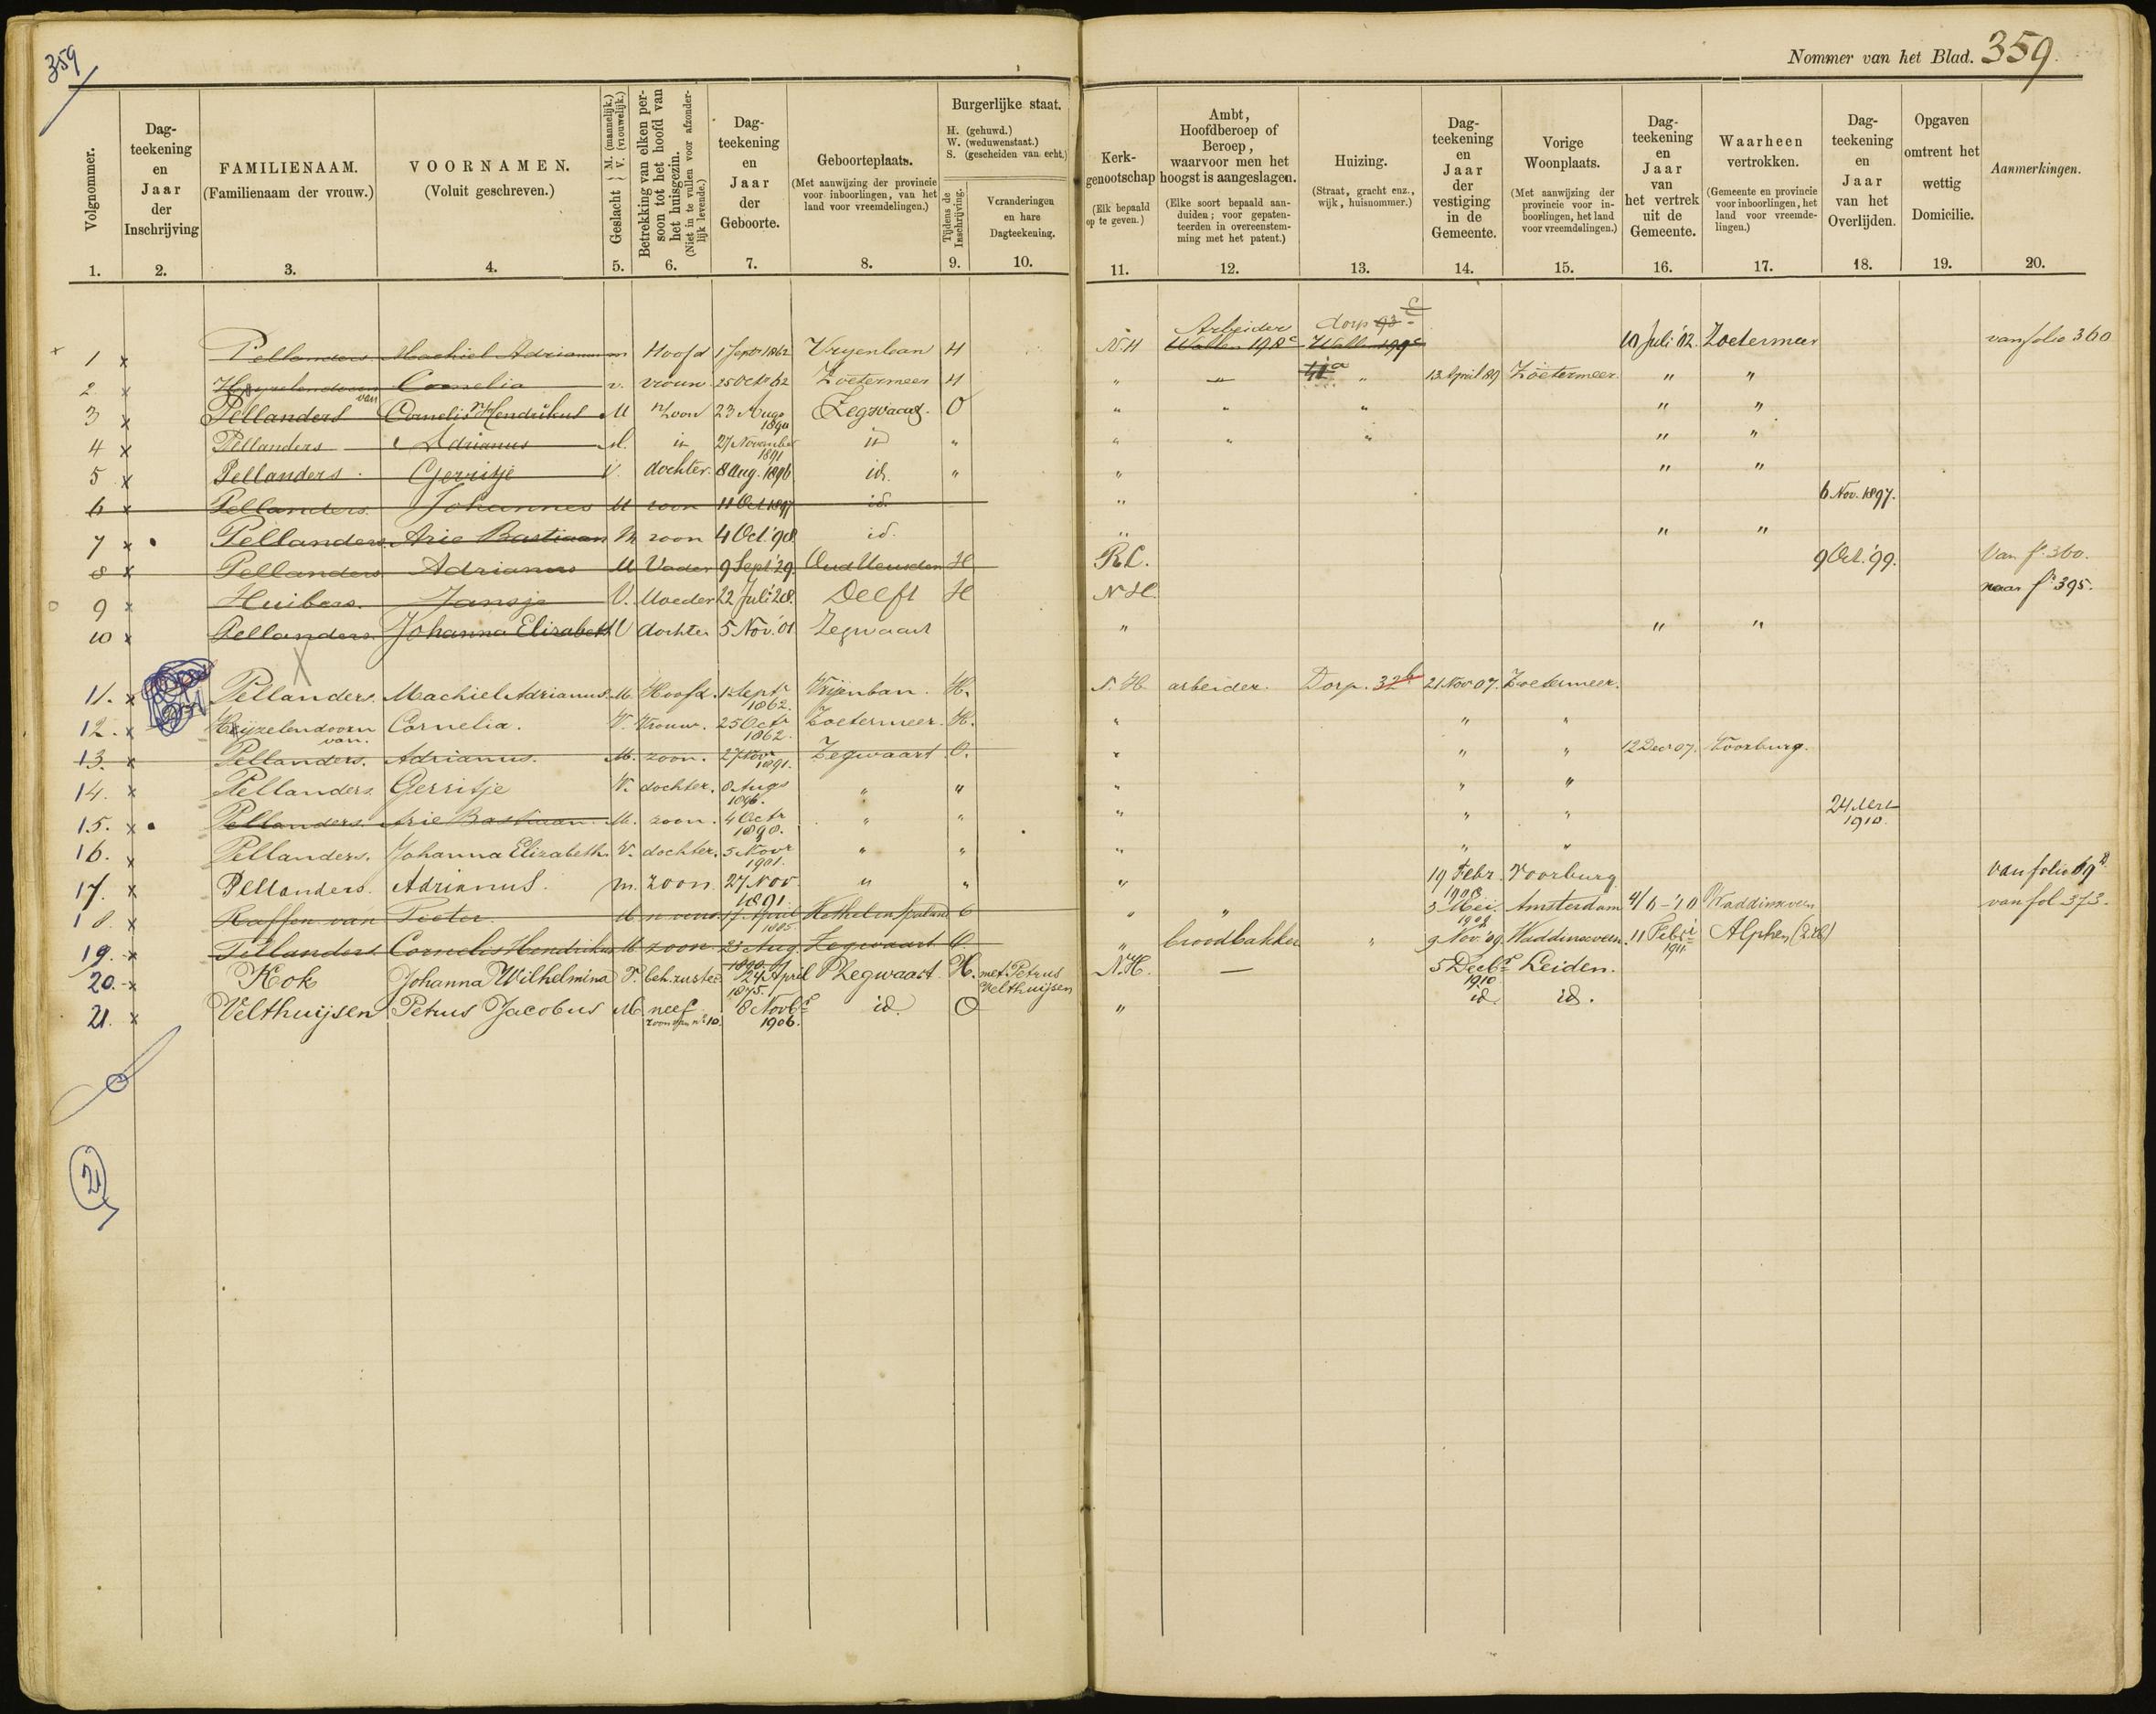 359
Nommer van het Blad. 359.
Volgnommer.
Dag-
teekening
en
Jaar
der
Inschrijving
FAMILIENAAM.
(Familienaam der vrouw.)
VOORNAMEN.
(Voluit geschreven.)
Geslacht { M. (mannelijk.) V. (vrouwelijk.)
Betrekking van elken per-
soon tot het hoofd van
het huisgezin.
(Niet in te vullen voor afzonder-
lijk levende.)
Dag-
teekening
en
Jaar
der
Geboorte.
Geboorteplaats.
(Met aanwijzing der provincie
voor inboorlingen, van het
land voor vreemdelingen.)
Burgerlijke staat.
H. (gehuwd.)
W. (weduwenstaat.)
S. (gescheiden van echt.)
Tijdens de
Inschrijving.
Veranderingen
en hare
Dagteekening.
Kerk-
genootschap
(Elk bepaald
op te geven.)
Ambt,
Hoofdberoep of
Beroep,
waarvoor men het
hoogst is aangeslagen.
(Elke soort bepaald aan-
duiden; voor gepaten-
teerden in overeenstem-
ming met het patent.)
Huizing.
(Straat, gracht enz.,
wijk, huisnommer.)
Dag-
teekening
en
Jaar
der
vestiging
in de
Gemeente.
Vorige
Woonplaats.
(Met aanwijzing der
provincie voor in-
boorlingen, het land
voor vreemdelingen.)
Dag-
teekening
en
Jaar
van
het vertrek
uit de
Gemeente.
Waarheen
vertrokken.
(Gemeente en provincie
voor inboorlingen, het
land voor vreemde-
lingen.)
Dag-
teekening
en
Jaar
van het
Overlijden.
Opgaven
omtrent het
wettig
Domicilie.
Aanmerkingen.
1. 2. 3. 4. 5. 6. 7. 8. 9. 10. 11. 12. 13. 14. 15. 16. 17. 18. 19. 20.
1 x Pellanders Machiel Adrianus m Hoofd 1 Septr 1862 Vryenban H N.H Arbeider Wallen 198c dorp 93 c 10 Juli '02. Zoetermeer van folio 360
2 x Heyzelendoorn van Cornelia v. vrouw 25 Octr 62 Zoetermeer H " " 41a " 13 April 189 Zoetermeer " "
3 x Pellanders Cornelis Hendrikus M zoon 23 Augs 1890 Zegwaart O " " " " "
4 x Pellanders Adrianus M. id 27 November 1891 id " " " " " "
5 x Pellanders Gerritje V. dochter 8 Aug. 1896 id. " " " "
6 x Pellanders Johannes M zoon 11 Oct 1897 id. " 6 Nov. 1897.
7 x Pellanders Arie Bastiaan M zoon 4 Oct. '98 id. " " "
8 x Pellanders Adrianus M Vader 9 Sept '29. Oud Heusden H R.C. 9 Oct. '99. Van fo. 360.
9 x Huibers. Jansje V. Moeder 22 Juli '28. Delft H N.H. naar fo. 395.
10 x Pellanders Johanna Elizabeth V dochter 5 Nov. '01 Zegwaart " " "
11. x Pellanders. Machiel Adrianus. M. Hoofd. 1 Septr 1862. Vrijenban. H. N.H. arbeider. Dorp. 32b 21 Nov. 07. Zoetermeer.
12. x Heijzelendoorn van. Cornelia. V. Vrouw. 25 Octr 1862. Zoetermeer. H. " " "
13. x Pellanders. Adrianus. M. zoon. 27 Nov 1891. Zegwaart O. " " " 12 Decr 07. Voorburg.
14. x Pellanders Gerritje V. dochter. 8 Augs 1896. " " " " "
15. x Pellanders. Arie Bastiaan. M. zoon. 4 Octr 1898. " " " " " 24 1910.
16. x Pellanders. Johanna Elizabeth. V. dochter. 5 Novr 1901. " " " " "
17. x Pellanders. Adrianus. m. zoon. 27 Nov 1891 " " " 19 Febr. 1908 Voorburg van folio 69
18. x Raffen van Pieter. M 17 April 1885 " " 3 Mei 1909 Amsterdam 4/6-10 Waddinxveen van fol 373.
19. x Pellanders. Cornelis Hendrikus M zoon 23 Aug 1890 Zegwaart O. " broodbakker " 9 Nov. '09. Waddinxveen. 11 Febri 1911 Alphen (Z.H.)
20. x Kok Johanna Wilhelmina V. beh. zuster 24 April 1875. Zegwaart. H. met Petrus Velthuijsen N.H. — 5 Decbr 1910 Leiden.
21. x Velthuijsen Petrus Jacobus M neef zoon van no. 10. 8 Novbr 1906. id. O " id. id.
21